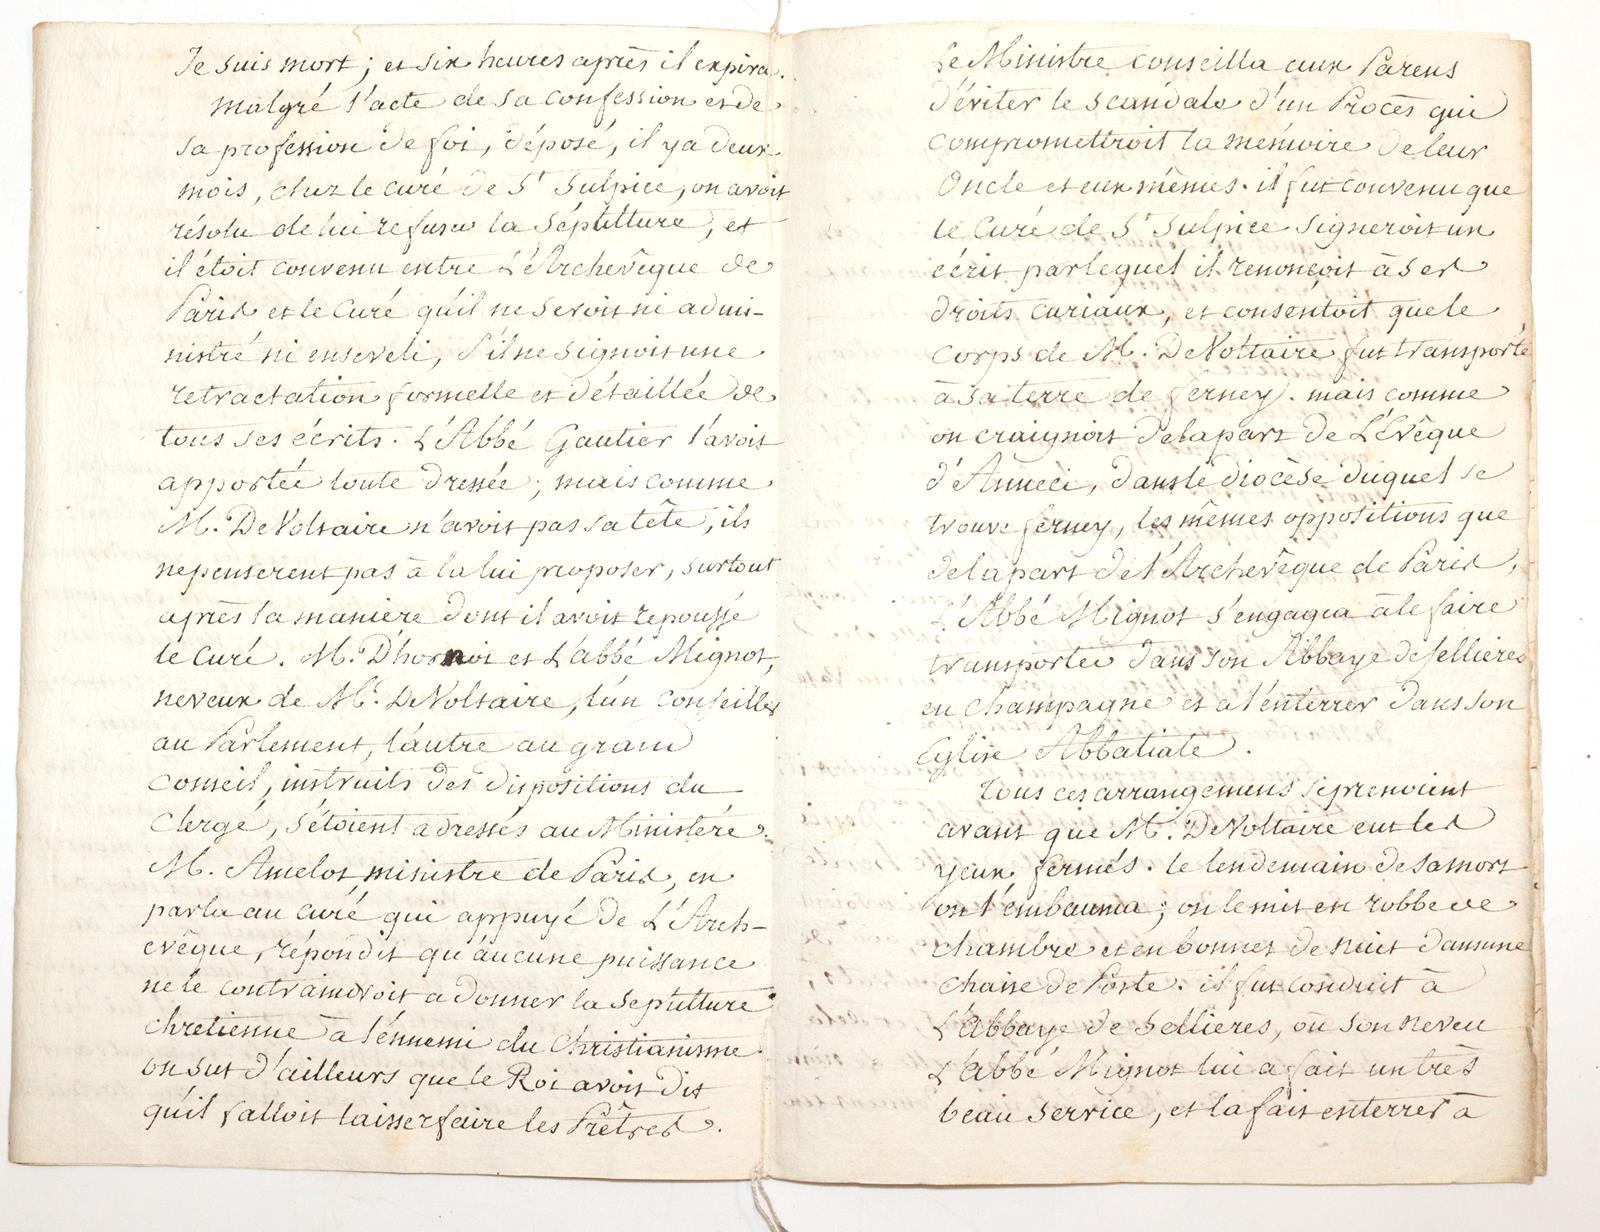 Je suis mort; et six heures après il expira.
malgré l'acte de sa confession et de
sa profession de foi, déposé, il y a deux
mois, chez le curé de St Sulpice, on avoit
résolu de lui refuser la Sépulture, et
il étoit convenu entre L'Archevêque de
Paris et le Curé qu'il ne seroit ni admi-
nistré ni enseveli, s'il ne signoit une
retractation formelle et détaillée de
tous ses écrits. L'Abbé Gautier l'avoit
apportée toute dressée; mais comme
M. De Voltaire n'avoit pas sa tête, ils
ne penserent pas à la lui proposer, surtout
après la manière dont il avoit repoussé
le curé. M. D'hornoi et L'abbé Mignot,
neveux de Mr. De Voltaire, l'un conseiller
au Parlement, l'autre au grand
conseil, instruits des dispositions du
Clergé, s'étoient adressés au Ministére.
M. Amelot ministre de Paris, en
parla au curé qui appuyé de L'Arch-
evêque, répondit qu'aucune puissance
ne le contraindroit a donner la sepulture
chretienne à l'énnemi du Christianisme.
on sut d'ailleurs que le Roi avoit dit
qu'il falloit laisser faire les Prêtres.
Le Ministre conseilla aux Parens
d'éviter le scandale d'un Procès qui
compromettroit la mémoire de leur
Oncle et eux mêmes. il fut convenu que
le Curé de St Sulpice signeroit un
écrit par lequel il renonçoit à ses
droits curiaux, et consentoit que le
corps de M. De Voltaire fut transporté
à sa terre de ferney. mais comme
on craignoit de la part de L'Evêque
d'Anneci, dans le diocèse duquel se
trouve ferney, les mêmes oppositions que
de la part de l'Archevêque de Paris,
L'Abbé Mignot s'engagea à le faire
transporter dans son Abbaye de Sellieres
en Champagne et a l'enterrer dans son
Eglise Abbatiale.
Tous ces arrangemens se prenoient
avant que Mr. De Voltaire eut les
yeux fermés. le lendemain de sa mort
on l'embauma; on le mit en robbe de
chambre et en bonnet de nuit dans une
chaise de Poste. il fut conduit à
L'abbaye de Sellieres, où son neveu
L'abbé Mignot lui a fait un très
beau service, et la fait enterrer à